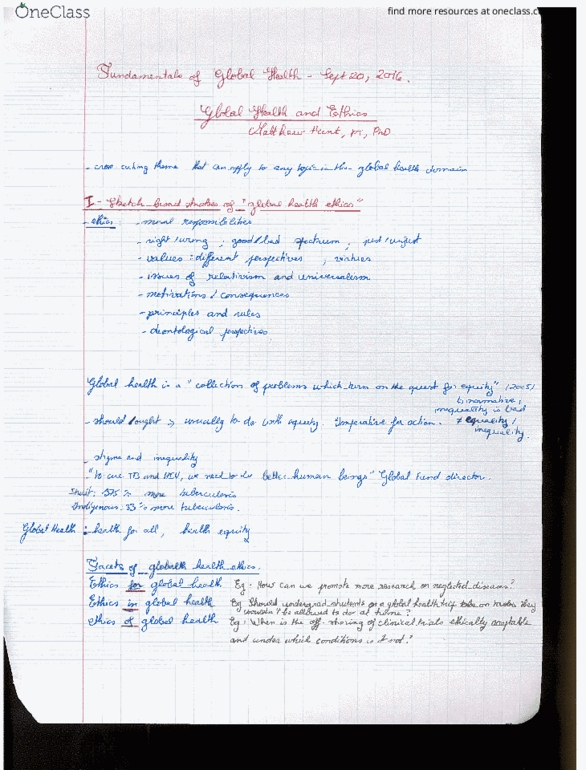 OneClass
find more resources at oneclass.c
Fundamentals of Global Health - Sept 20, 2016.
Global Health and Ethics
Matthew Hunt, PT, PhD
- cross cutting theme that can apply to any topic in the global health domain
I - Sketch broad strokes of "global health ethics"
- ethics: - moral responsibilities
- right/wrong ; good/bad spectrum ; just/unjust
- values : different perspectives ; virtues
- issues of relativism and universalism
- motivations / consequences
- principles and rules
- deontological perspectives
Global health is a "collection of problems which turn on the quest for equity" (2005)
↳ normative:
inequality is bad
- should/ought → usually to do with equity. Imperative for action. ≠ equality/
inequality.
- stigma and inequality
"To cure TB and HIV, we need to be better human beings" Global Fund director.
Inuit: % more tuberculosis
Indigenous: % more tuberculosis.
Global Health : health for all, health equity
Facets of global health ethics.
Ethics for global health Eg: How can we promote more research on neglected diseases?
Ethics in global health Eg Should undergrad students on a global health trip take on tasks they
wouldn't be allowed to do at home?
ethics of global health Eg: When is the off-shoring of clinical trials ethically acceptable
and under which conditions is it not?